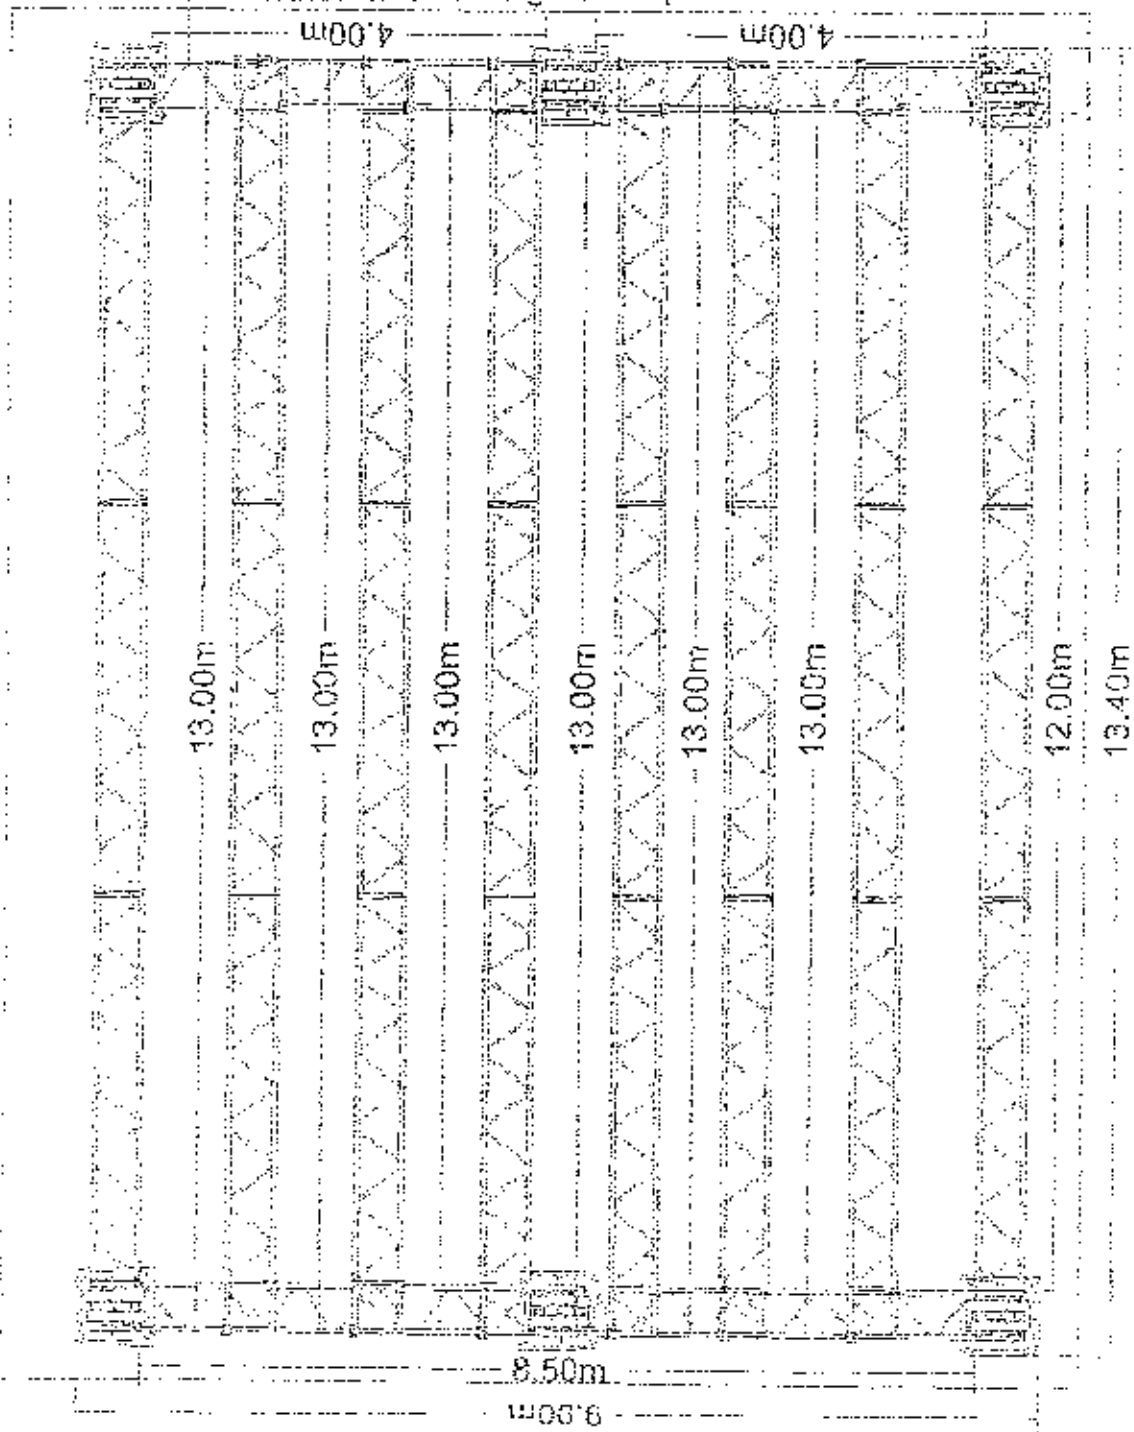 4.00m
4.00m
13.00m
13.00m
13.00m
13.00m
13.00m
13.00m
12.00m
13.40m
8.50m